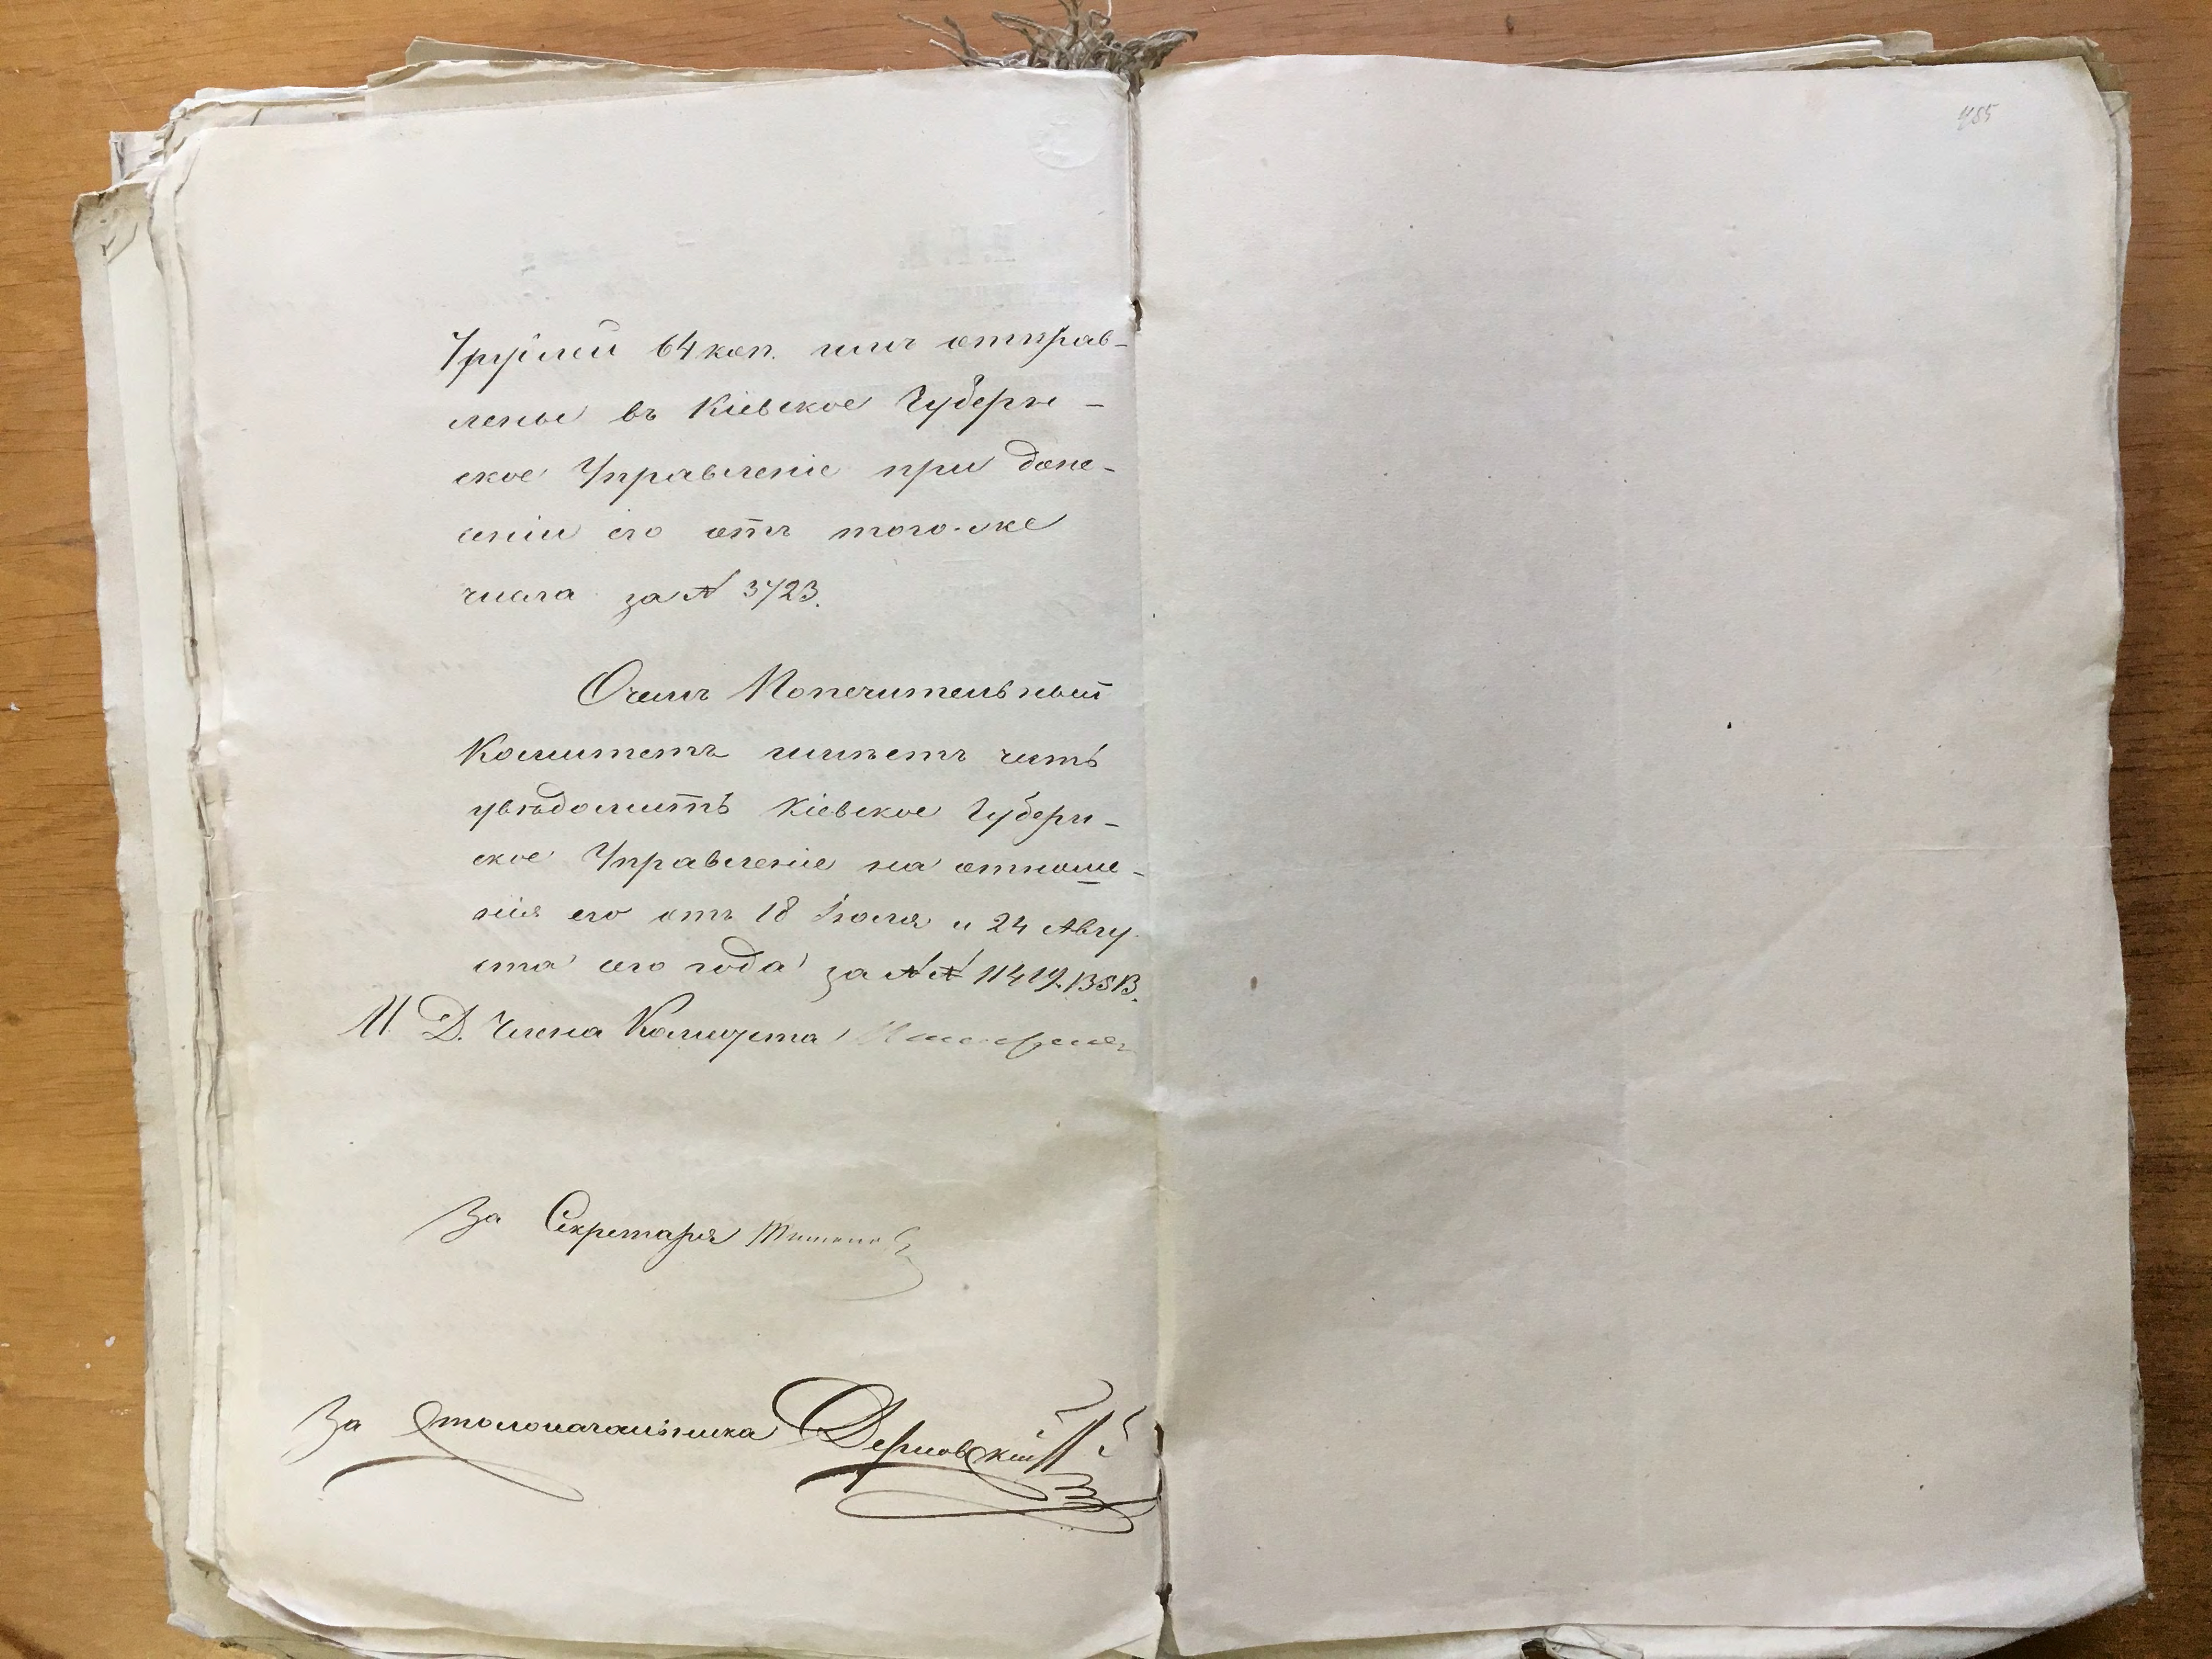 485
7 рублей 64 коп. имъ отправ-
лены въ Кіевское Губерн-
ское Управленіе при доне-
сеніи его отъ того-же
числа за № 3723.
О чемъ Попечительный
Комитетъ имѣетъ честь
увѣдомить Кіевское Губерн-
ское Управленіе на отноше-
нія его отъ 18 Іюля и 24 Авгу-
ста сего года за №№ 11419. 13813.
И. Д. Члена Комитета
За Секретаря
За Столоначальника Дерновскій